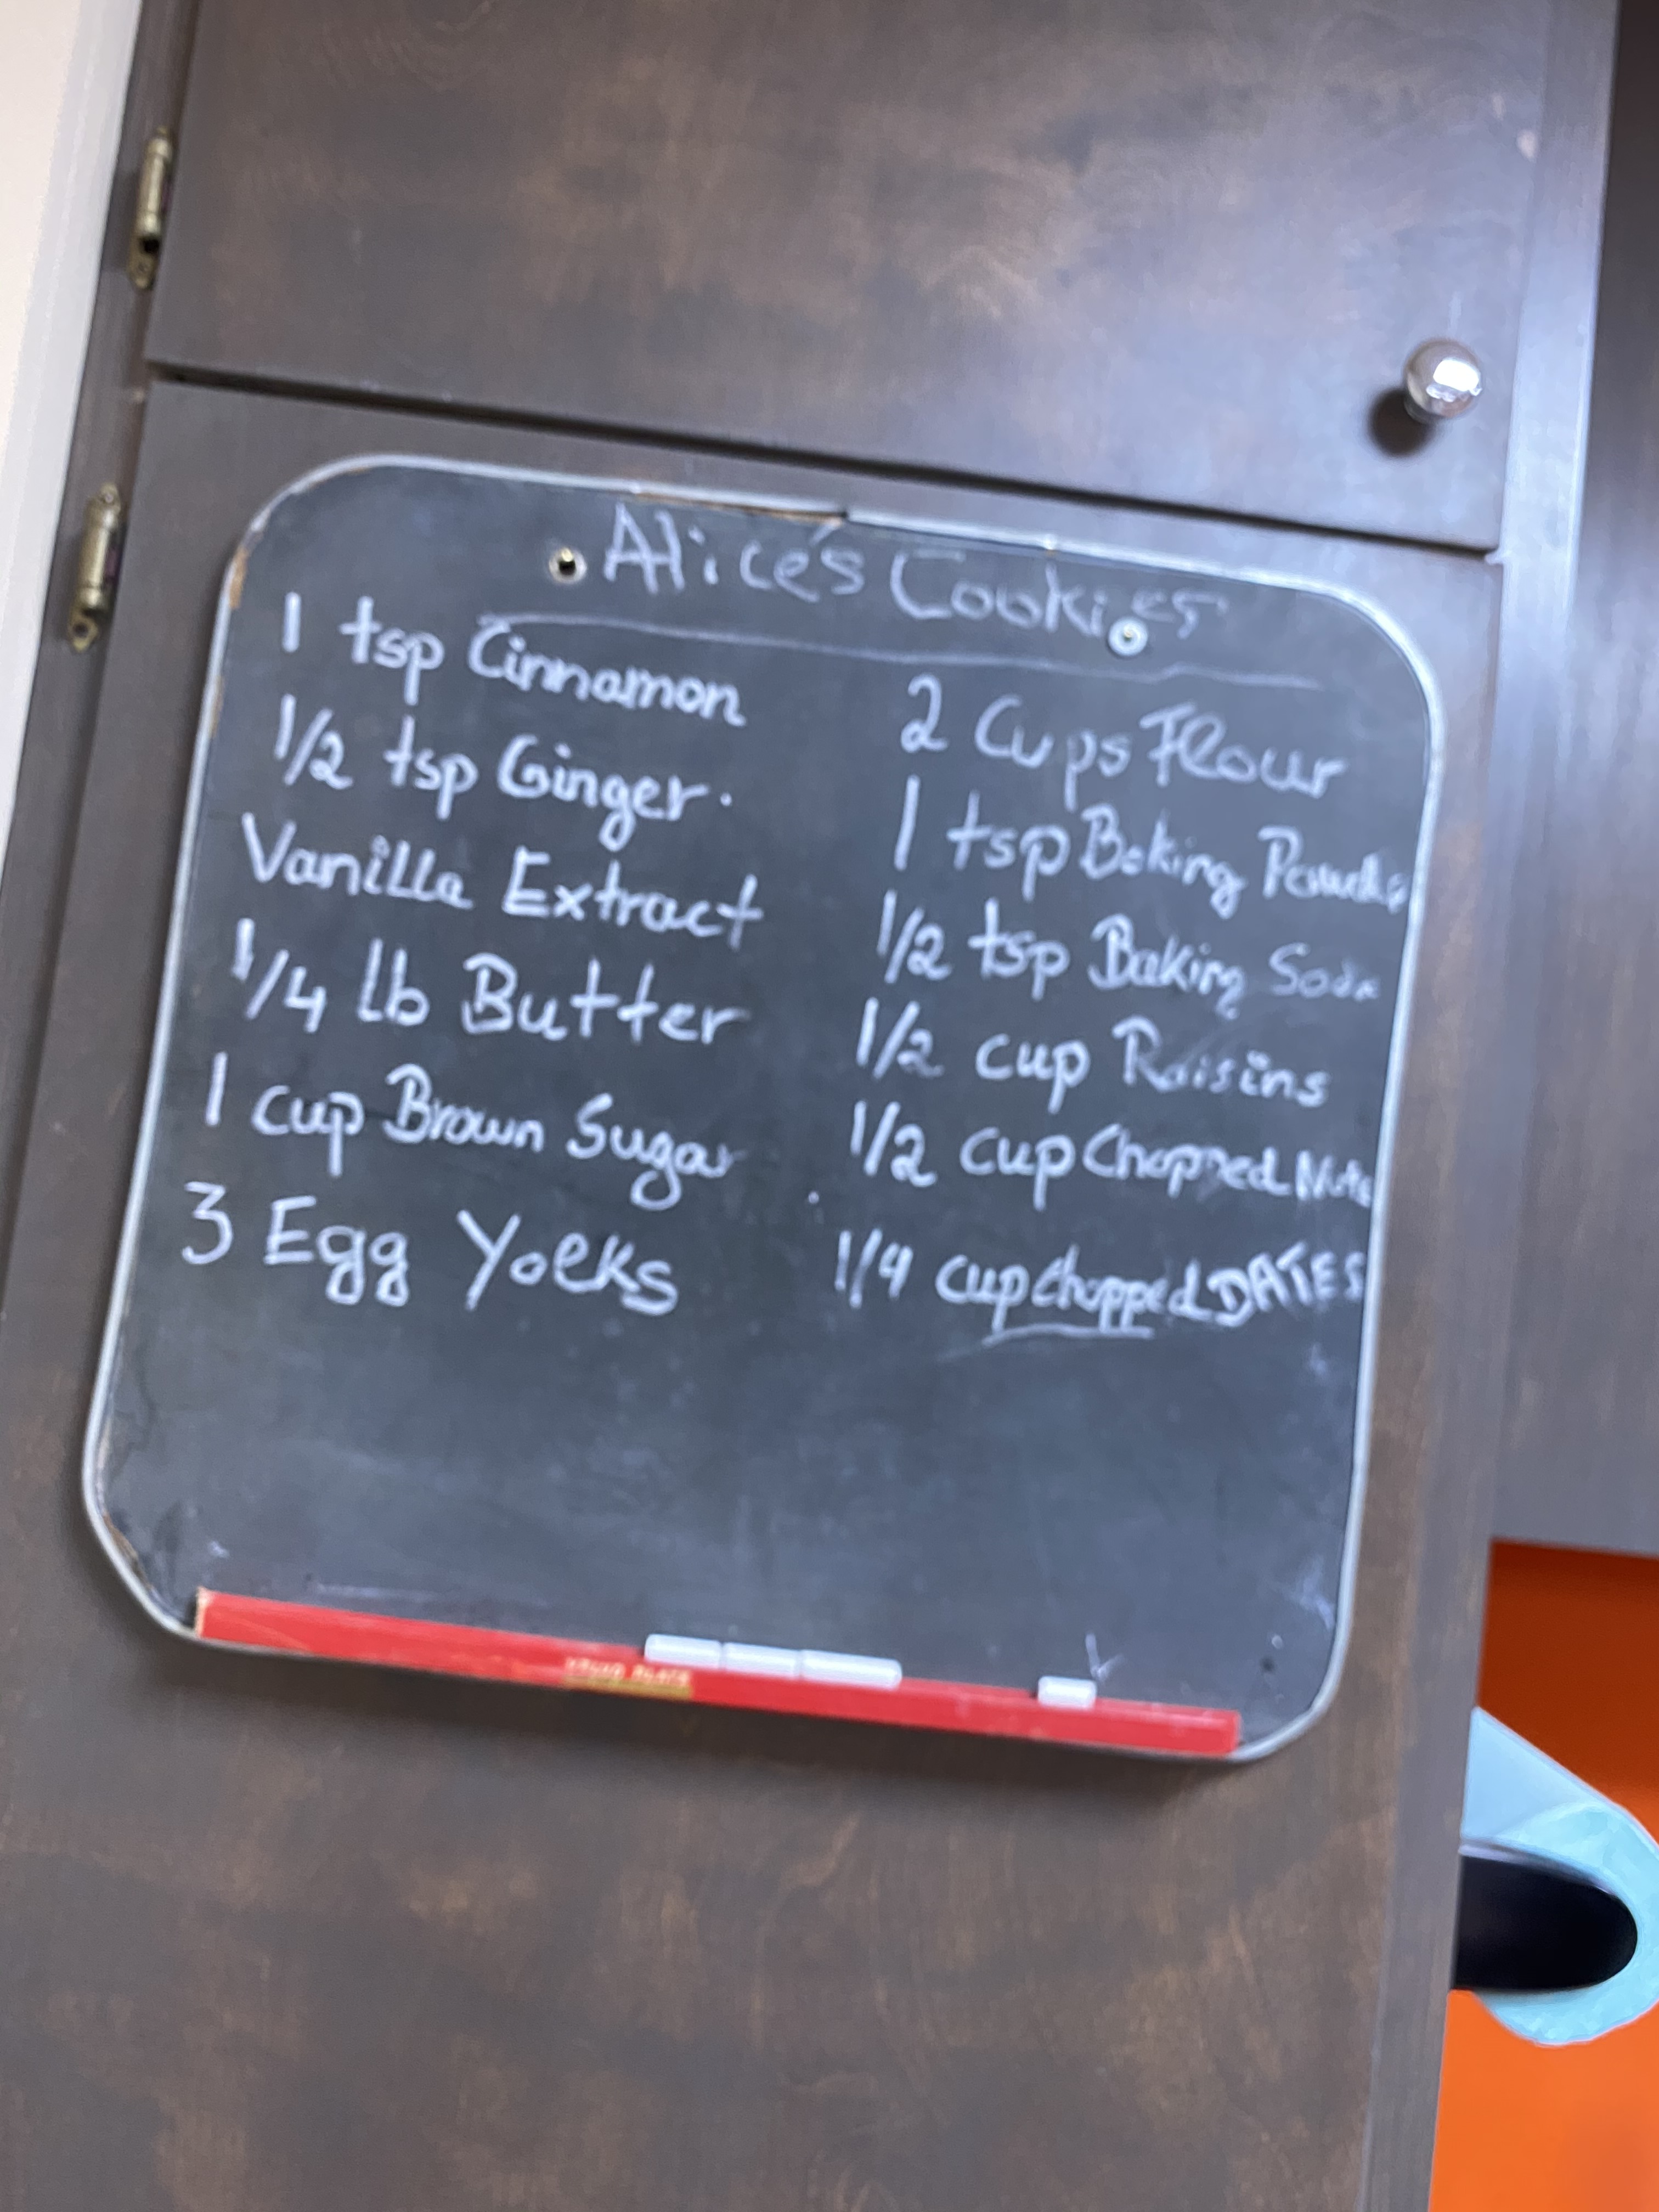 Alice's Cookies
1 tsp Cinnamon
1/2 tsp Ginger.
Vanilla Extract
1/4 lb Butter
1 cup Brown Sugar
3 Egg Yolks
2 Cups Flour
1 tsp Baking Powder
1/2 tsp Baking Soda
1/2 cup Raisins
1/2 cup Chopped Nuts
1/4 cup chopped DATES